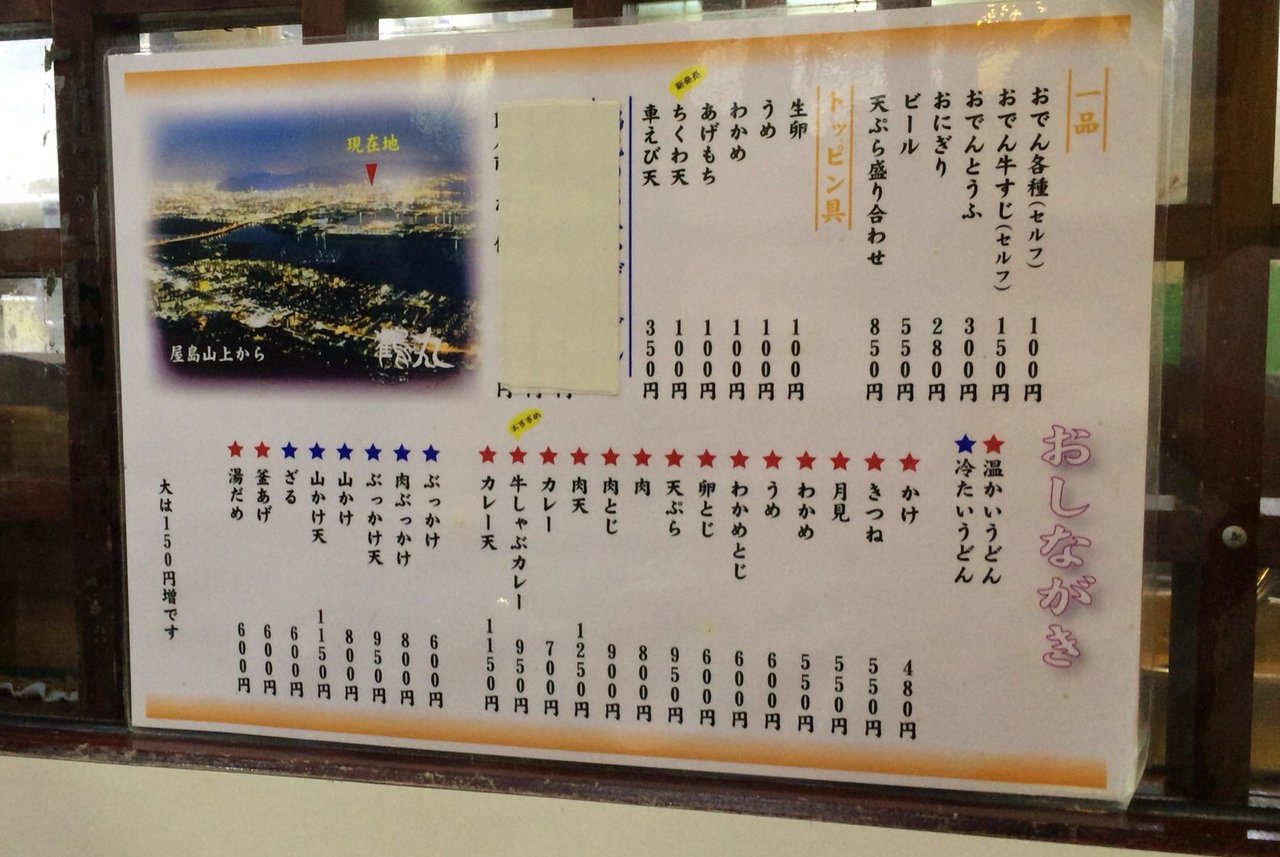 一品
おでん各種(セルフ) 100円
おでん牛すじ(セルフ) 150円
おでんとうふ 300円
おにぎり 280円
ビール 550円
天ぷら盛り合わせ 850円
トッピン具
生卵 100円
うめ 100円
わかめ 100円
あげもち 100円
新発売
ちくわ天 100円
車えび天 350円
現在地
屋島山上から
鶴丸
おしながき
★温かいうどん
★冷たいうどん
★かけ 480円
★きつね 550円
★月見 550円
★わかめ 550円
★うめ 600円
★わかめとじ 600円
★卵とじ 600円
★天ぷら 950円
★肉 800円
★肉とじ 900円
★肉天 1250円
★カレー 700円
おすすめ
★牛しゃぶカレー 950円
★カレー天 1150円
★ぶっかけ 600円
★肉ぶっかけ 800円
★ぶっかけ天 950円
★山かけ 800円
★山かけ天 1150円
★ざる 600円
★釜あげ 600円
★湯だめ 600円
大は150円増です